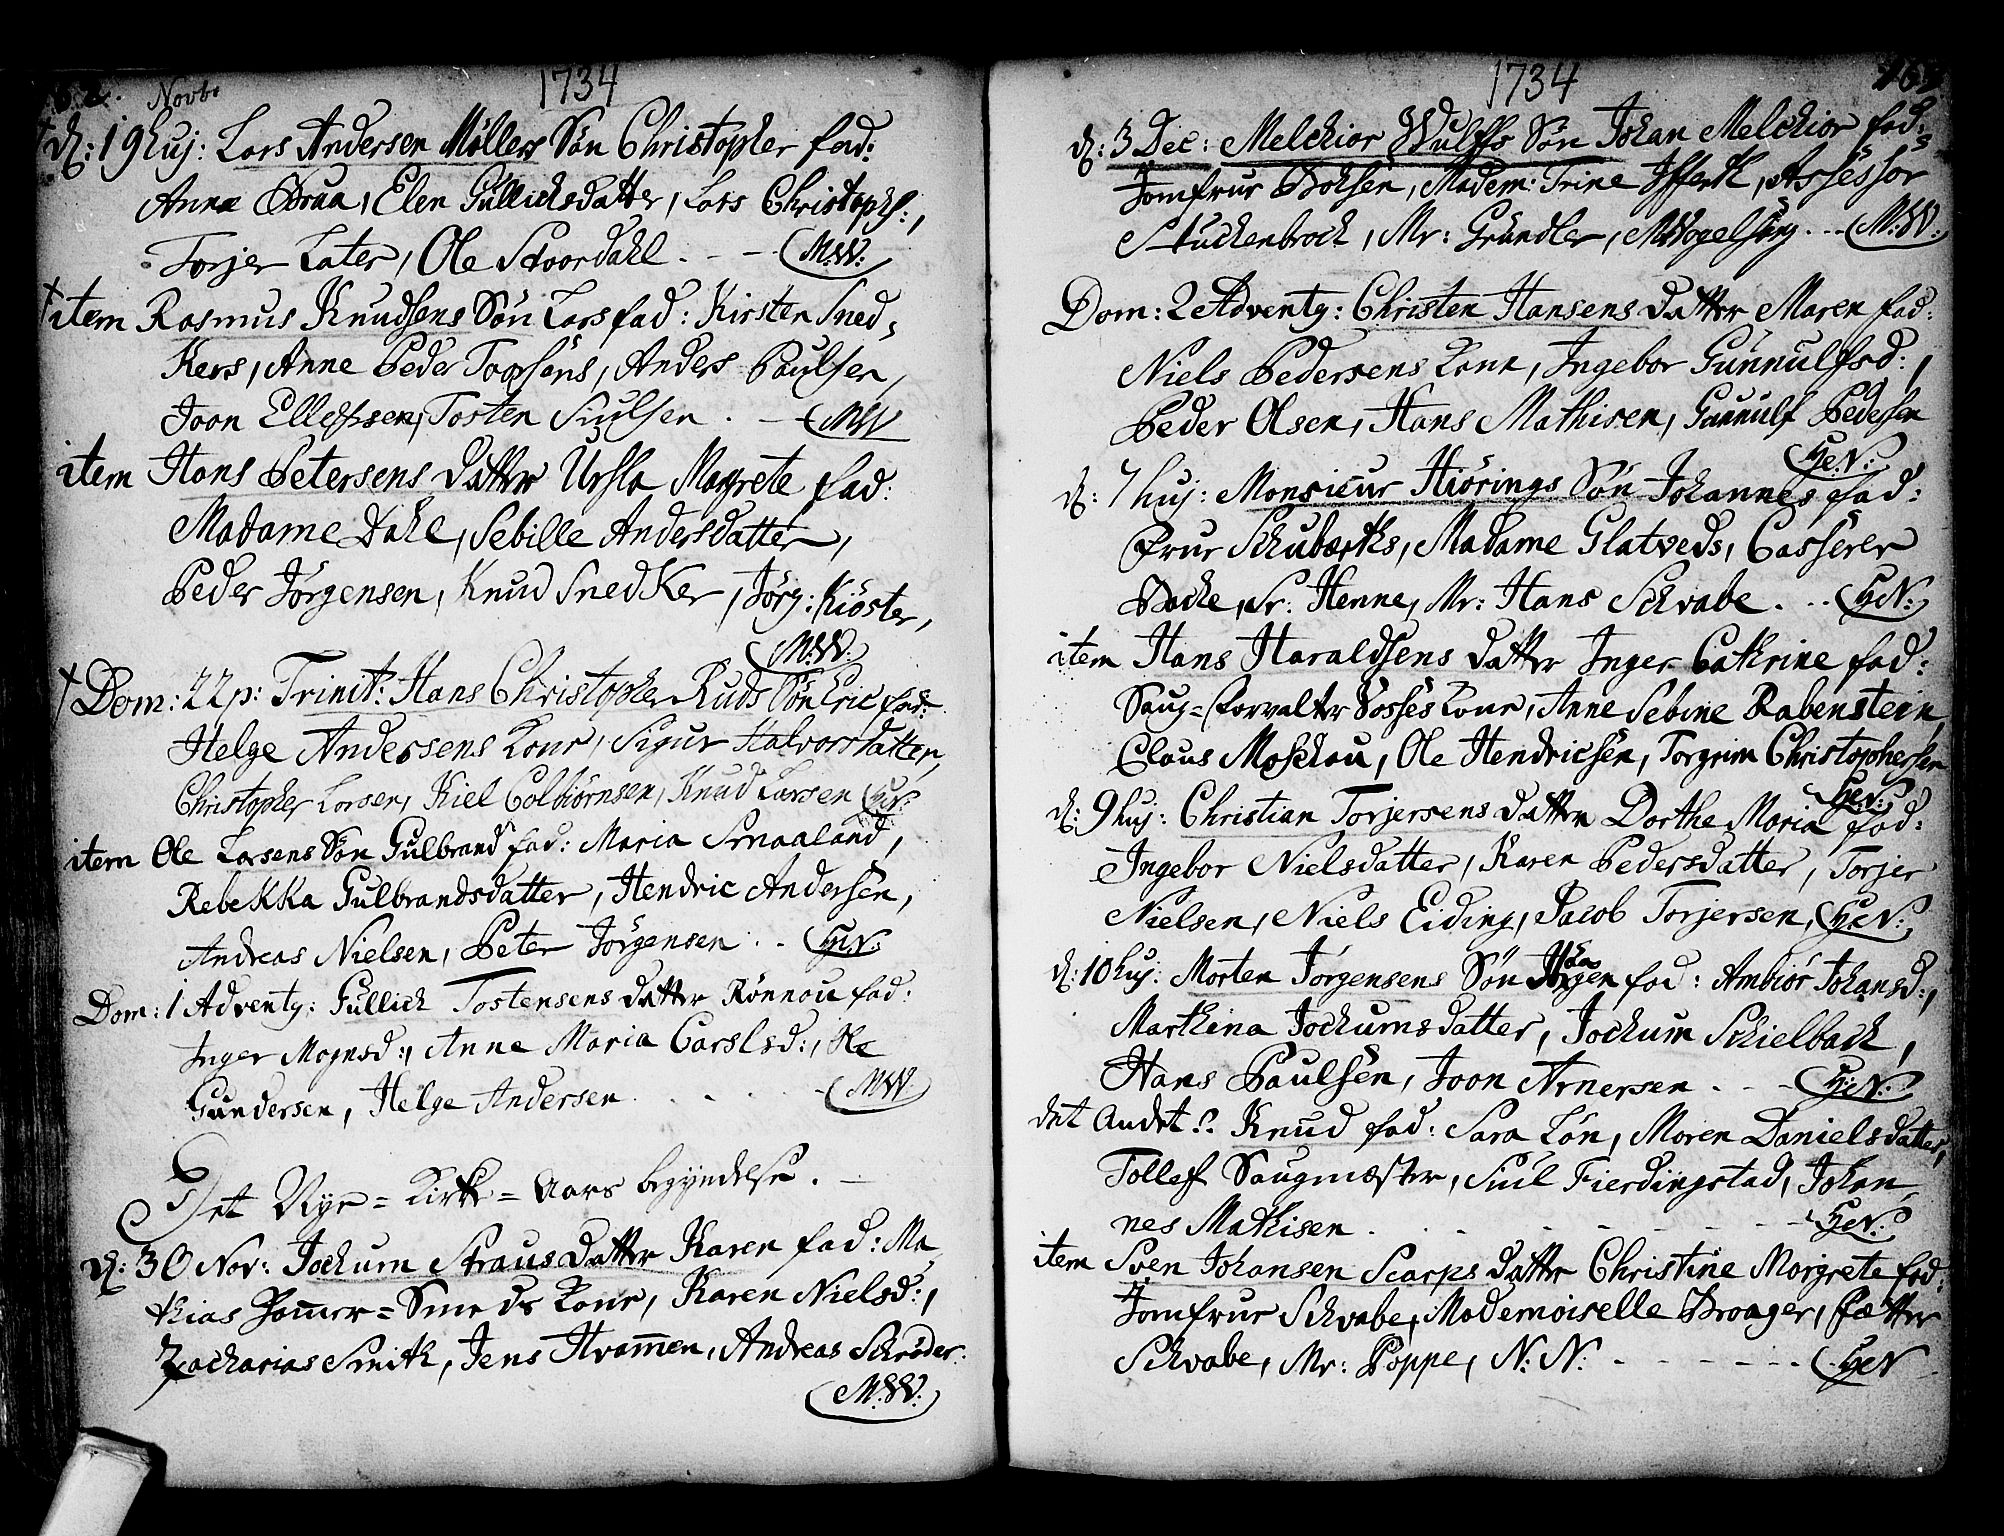 162. Novb: 1734
d: 19 huj: Lars Andersen Møllers Søn Christopher fad:
Anna Braa, Elen Gullichsdatter, Lars Christophs:,
Torjer Later, Ole Stoordahl. - - - (M:W:
item Rasmus Knudsens Søn Lars fad: Kirsten Sned=
Kers, Anne Peder Toorsøns, Anders Paulsen,
Joon Ellefsen, Tosten Siulsen. - (MW
item Hans Petersens datter Ursla Magrete fad:
Madame Dahl, Sebille Andersdatter,
Peder Jørgensen, Knud SnedKer, Jørg: Kiøster,
(M:W:
Dom: 22 p: Trinit: Hans Christopher Ruds Søn Eric fad:
Helge Andersens Kone, Sigur Halvorsdatter,
Christopher Larsen, Kiel Colbiørnsen, Knud Larsen (H:N:
item Ole Larsens Søn Gulbrand fad: Maria Smaaland,
RebeKKa Gulbrandsdatter, Hendric Andersen,
Andreas Nielsen, Peter Jørgensen . . (H:N:
Dom: 1 Adventy: Gullich Tostensens datter Rønnou fad:
Inger Mognsd:, Anne Maria Carslsd:, Ole
Gundersen, Helge Andersen . . . . (MW
Det Nye = Kirke = Aars begyndelse. —
d: 30 Nov: Jochum Straus datter Karen fad: Ma
thias Hamer = Smeds Kone, Karen Nielsd:,
Zacharias Smith, Jens Hvamen, Andreas Schrøder:
(M:W:
1734 163
d: 3 Dec: Melchior Wulffs Søn Johan Melchior fad:
Jomfrur Boksen, Madem: Trine Ifferk, Assessor
Stuckenbrock, Mr: Gründler, M: Vogelsang. - - (M:W:
Dom: 2 Adventy: Christen Hansens datter Maren fad:
Niels Pedersens Kone, Ingebor Gunnulfsd:,
Peder Olsen, Hans Mathisen, Gunnulf Pedersen
(H:N:
d: 7 huj: Monsieur Hiørings Søn Johannes fad:
Frur Schubærths, Madame Glatveds, Casserer
Bache, Sr: Henne, Mr: Hans Schvabe. . . (H:N:
item Hans Haraldsens datter Inger Cathrine fad:
Saug = Forvalter Vosses Kone, Anne Sebine Rabenstein,
Claus Moschou, Ole Hendrichsen, Torgrim Christophersen
(H:N:
d: 9 huj: Christian Torjersens datter Dorthe Maria fad:
Ingebor Nielsdatter, Karen Pedersdatter, Torjer
Nielsen, Niels Eiding, Jacob Torjersen, (H:N:
d: 10 huj: Morten Jørgensens Søn Jørgen fad: Ambiør Johansd:,
Marthina Jochumsdatter, Jochum Schielbach,
Hans Paulsen, Joon Arnersen . - - (H:N:
det Andet S: Knud fad: Sara Løn, Maren Danielsdatter,
Tollef Saugmæster, Siul Fierdingstad, Johan,
nes Mathisen . . . - - - (H:N:
item Sven Johansen Scarps datter Christine Margrete fad:
Jomfrur Schvabe, Mademoiselle Broager, Fætter
Schvabe, Mr: Poppe, N: N: - - - - (H:N